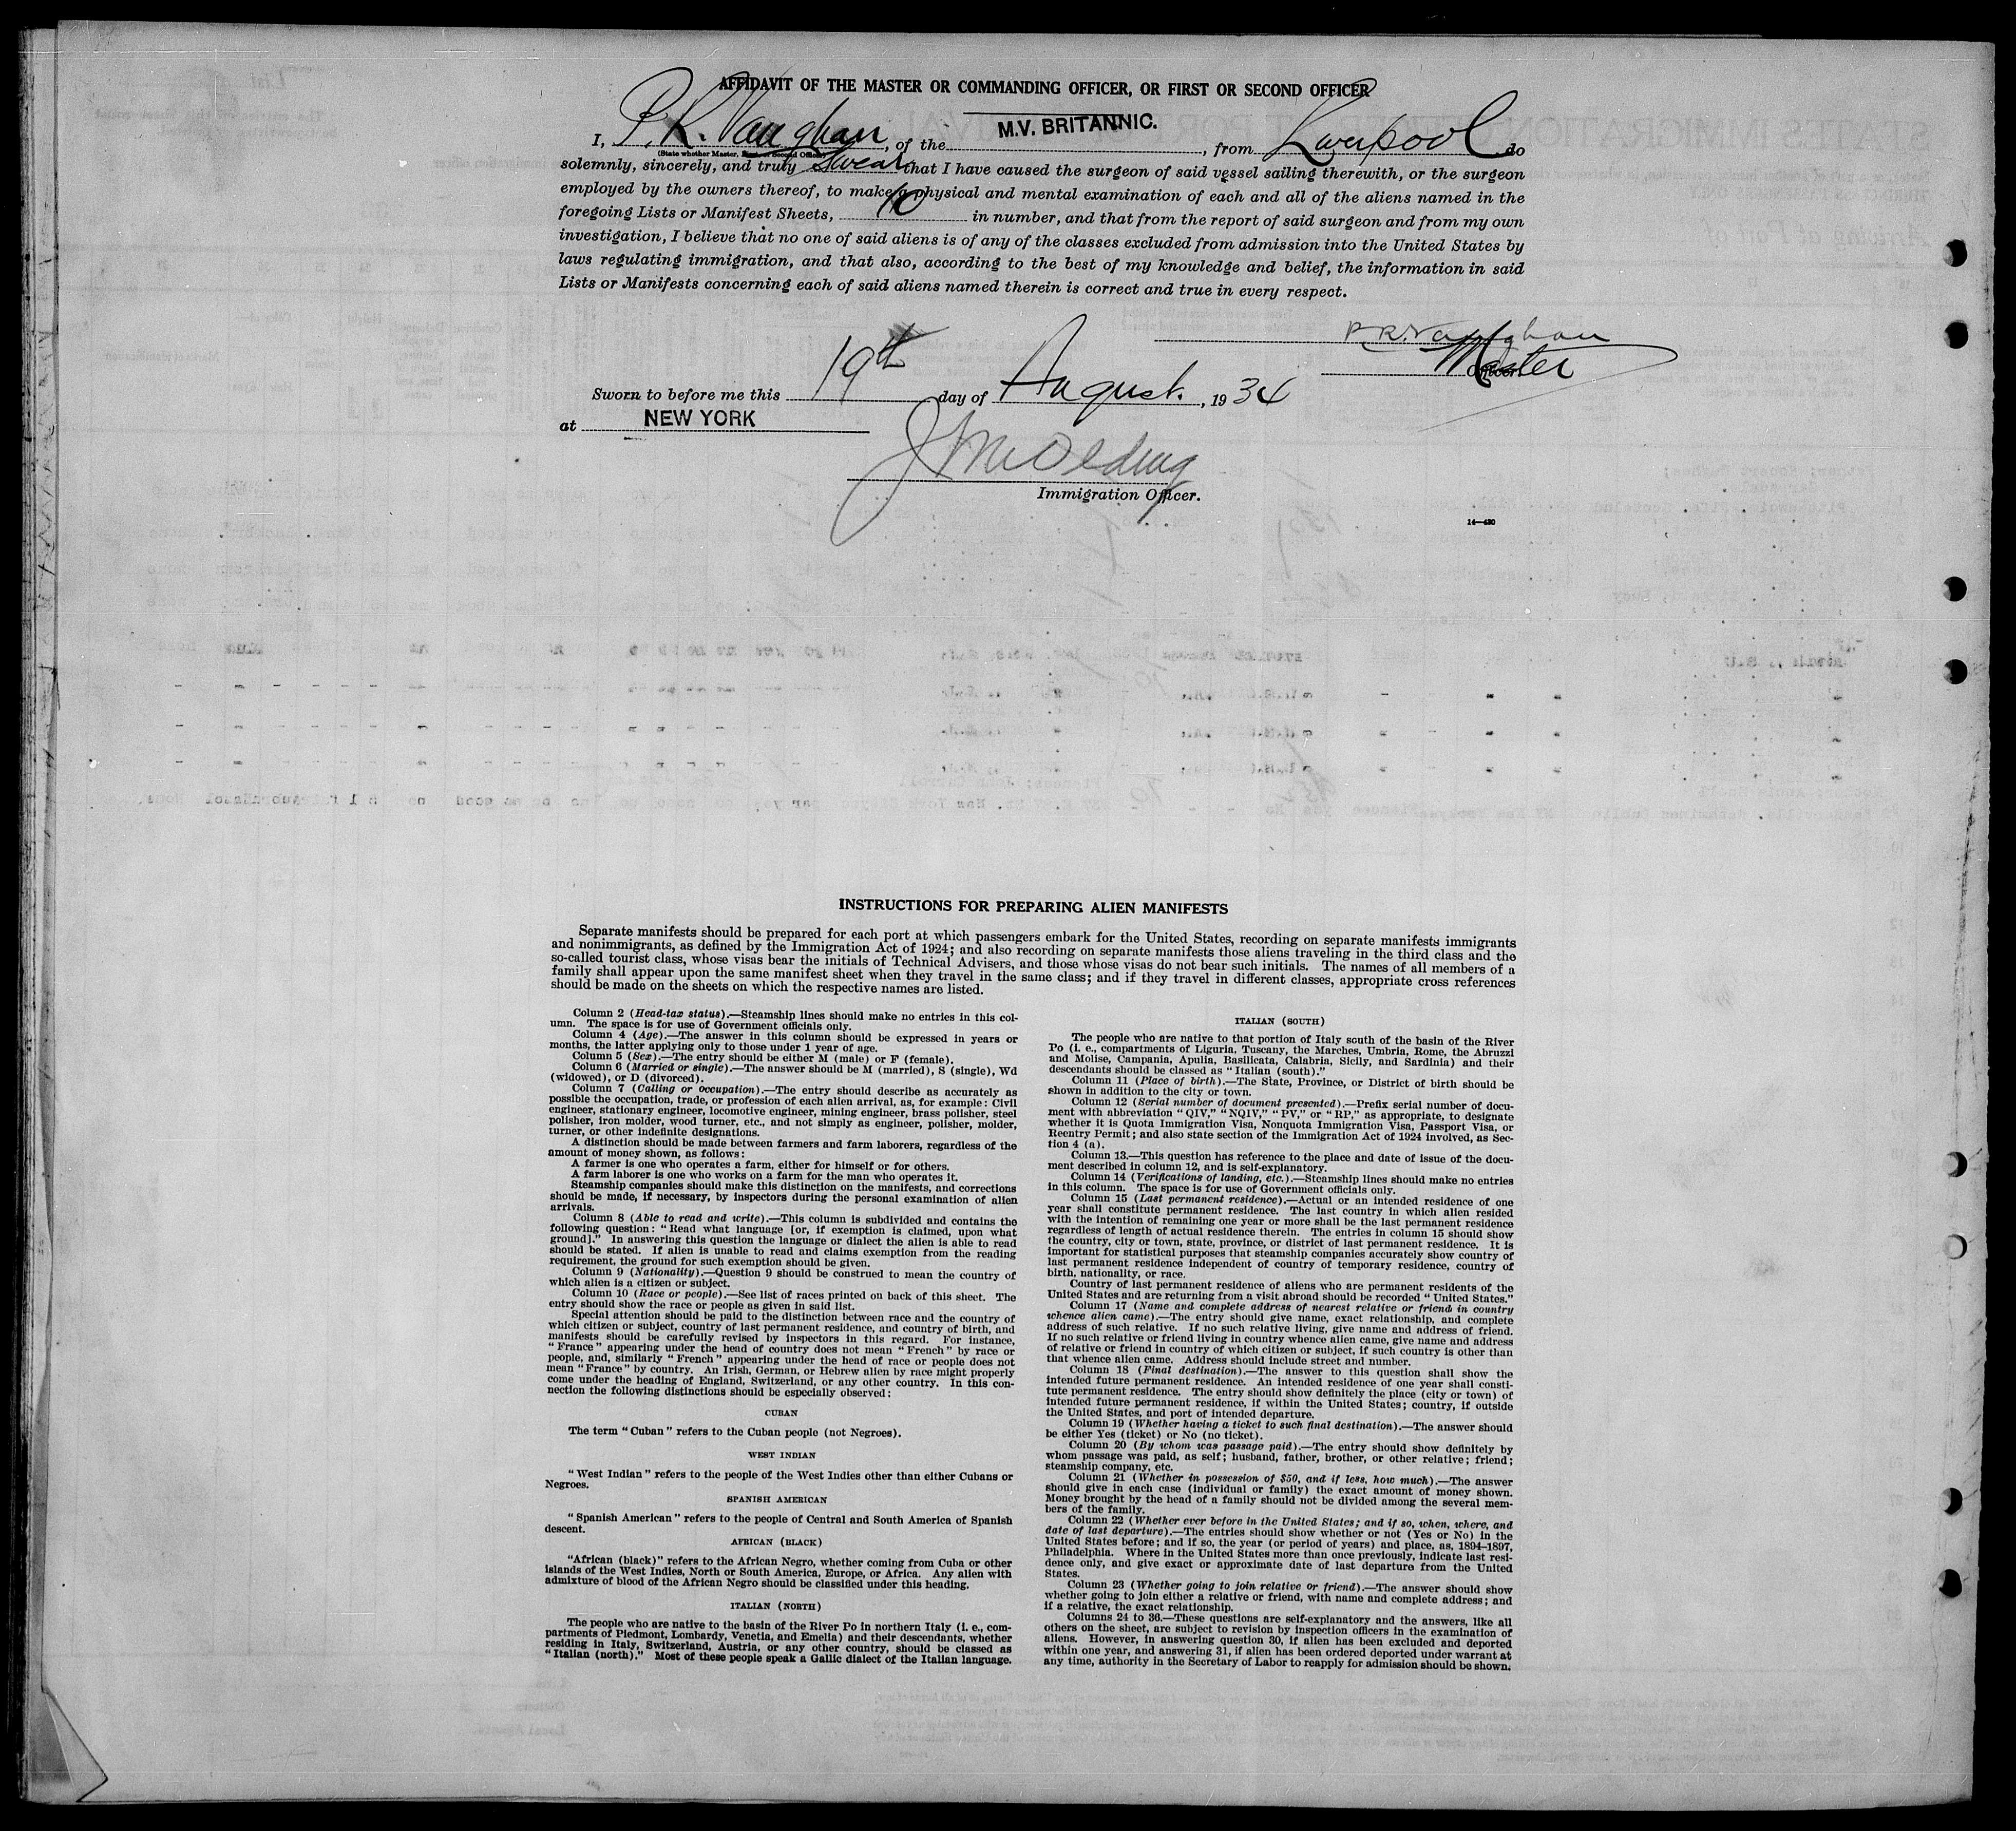 AFFIDAVIT OF THE MASTER OR COMMANDING OFFICER, OR FIRST OR SECOND OFFICER
I, P. R. Vaughan, of the M.V. BRITANNIC., from Liverpool do
(State whether Master, First or Second Officer)
solemnly, sincerely, and truly Swear that I have caused the surgeon of said vessel sailing therewith, or the surgeon
employed by the owners thereof, to make a physical and mental examination of each and all of the aliens named in the
foregoing Lists or Manifest Sheets, 10 in number, and that from the report of said surgeon and from my own
investigation, I believe that no one of said aliens is of any of the classes excluded from admission into the United States by
laws regulating immigration, and that also, according to the best of my knowledge and belief, the information in said
Lists or Manifests concerning each of said aliens named therein is correct and true in every respect.
P. R. Vaughan
Master
Officer.
Sworn to before me this 19th day of August, 1934
at NEW YORK
Immigration Officer.
14—430
INSTRUCTIONS FOR PREPARING ALIEN MANIFESTS
Separate manifests should be prepared for each port at which passengers embark for the United States, recording on separate manifests immigrants
and nonimmigrants, as defined by the Immigration Act of 1924; and also recording on separate manifests those aliens traveling in the third class and the
so-called tourist class, whose visas bear the initials of Technical Advisers, and those whose visas do not bear such initials. The names of all members of a
family shall appear upon the same manifest sheet when they travel in the same class; and if they travel in different classes, appropriate cross references
should be made on the sheets on which the respective names are listed.
Column 2 (Head-tax status).—Steamship lines should make no entries in this col-
umn. The space is for use of Government officials only.
Column 4 (Age).—The answer in this column should be expressed in years or
months, the latter applying only to those under 1 year of age.
Column 5 (Sex).—The entry should be either M (male) or F (female).
Column 6 (Married or single).—The answer should be M (married), S (single), Wd
(widowed), or D (divorced).
Column 7 (Calling or occupation).—The entry should describe as accurately as
possible the occupation, trade, or profession of each alien arrival, as, for example: Civil
engineer, stationary engineer, locomotive engineer, mining engineer, brass polisher, steel
polisher, iron molder, wood turner, etc., and not simply as engineer, polisher, molder,
turner, or other indefinite designations.
A distinction should be made between farmers and farm laborers, regardless of the
amount of money shown, as follows:
A farmer is one who operates a farm, either for himself or for others.
A farm laborer is one who works on a farm for the man who operates it.
Steamship companies should make this distinction on the manifests, and corrections
should be made, if necessary, by inspectors during the personal examination of alien
arrivals.
Column 8 (Able to read and write).—This column is subdivided and contains the
following question: "Read what language [or, if exemption is claimed, upon what
ground]." In answering this question the language or dialect the alien is able to read
should be stated. If alien is unable to read and claims exemption from the reading
requirement, the ground for such exemption should be given.
Column 9 (Nationality).—Question 9 should be construed to mean the country of
which alien is a citizen or subject.
Column 10 (Race or people).—See list of races printed on back of this sheet. The
entry should show the race or people as given in said list.
Special attention should be paid to the distinction between race and the country of
which citizen or subject, country of last permanent residence, and country of birth, and
manifests should be carefully revised by inspectors in this regard. For instance,
"France" appearing under the head of country does not mean "French" by race or
people, and, similarly "French" appearing under the head of race or people does not
mean "France" by country. An Irish, German, or Hebrew alien by race might properly
come under the heading of England, Switzerland, or any other country. In this con-
nection the following distinctions should be especially observed:
CUBAN
The term "Cuban" refers to the Cuban people (not Negroes).
WEST INDIAN
"West Indian" refers to the people of the West Indies other than either Cubans or
Negroes.
SPANISH AMERICAN
"Spanish American" refers to the people of Central and South America of Spanish
descent.
AFRICAN (BLACK)
"African (black)" refers to the African Negro, whether coming from Cuba or other
islands of the West Indies, North or South America, Europe, or Africa. Any alien with
admixture of blood of the African Negro should be classified under this heading.
ITALIAN (NORTH)
The people who are native to the basin of the River Po in northern Italy (i. e., com-
partments of Piedmont, Lombardy, Venetia, and Emelia) and their descendants, whether
residing in Italy, Switzerland, Austria, or any other country, should be classed as
"Italian (north)." Most of these people speak a Gallic dialect of the Italian language.
ITALIAN (SOUTH)
The people who are native to that portion of Italy south of the basin of the River
Po (i. e., compartments of Liguria, Tuscany, the Marches, Umbria, Rome, the Abruzzi
and Molise, Campania, Apulia, Basilicata, Calabria, Sicily, and Sardinia) and their
descendants should be classed as "Italian (south)."
Column 11 (Place of birth).—The State, Province, or District of birth should be
shown in addition to the city or town.
Column 12 (Serial number of document presented).—Prefix serial number of docu-
ment with abbreviation "QIV," "NQIV," "PV," or "RP," as appropriate, to designate
whether it is Quota Immigration Visa, Nonquota Immigration Visa, Passport Visa, or
Reentry Permit; and also state section of the Immigration Act of 1924 involved, as Sec-
tion 4 (a).
Column 13.—This question has reference to the place and date of issue of the docu-
ment described in column 12, and is self-explanatory.
Column 14 (Verifications of landing, etc.).—Steamship lines should make no entries
in this column. The space is for use of Government officials only.
Column 15 (Last permanent residence).—Actual or an intended residence of one
year shall constitute permanent residence. The last country in which alien resided
with the intention of remaining one year or more shall be the last permanent residence
regardless of length of actual residence therein. The entries in column 15 should show
the country, city or town, state, province, or district of last permanent residence. It is
important for statistical purposes that steamship companies accurately show country of
last permanent residence independent of country of temporary residence, country of
birth, nationality, or race.
Country of last permanent residence of aliens who are permanent residents of the
United States and are returning from a visit abroad should be recorded "United States."
Column 17 (Name and complete address of nearest relative or friend in country
whence alien came).—The entry should give name, exact relationship, and complete
address of such relative. If no such relative living, give name and address of friend.
If no such relative or friend living in country whence alien came, give name and address
of relative or friend in country of which citizen or subject, if such country is other than
that whence alien came. Address should include street and number.
Column 18 (Final destination).—The answer to this question shall show the
intended future permanent residence. An intended residence of one year shall consti-
tute permanent residence. The entry should show definitely the place (city or town) of
intended future permanent residence, if within the United States; country, if outside
the United States, and port of intended departure.
Column 19 (Whether having a ticket to such final destination).—The answer should
be either Yes (ticket) or No (no ticket).
Column 20 (By whom was passage paid).—The entry should show definitely by
whom passage was paid, as self; husband, father, brother, or other relative; friend;
steamship company, etc.
Column 21 (Whether in possession of $50, and if less, how much).—The answer
should give in each case (individual or family) the exact amount of money shown.
Money brought by the head of a family should not be divided among the several mem-
bers of the family.
Column 22 (Whether ever before in the United States; and if so, when, where, and
date of last departure).—The entries should show whether or not (Yes or No) in the
United States before; and if so, the year (or period of years) and place, as, 1894-1897,
Philadelphia. Where in the United States more than once previously, indicate last resi-
dence only, and give exact or approximate date of last departure from the United
States.
Column 23 (Whether going to join relative or friend).—The answer should show
whether going to join either a relative or friend, with name and complete address; and
if a relative, the exact relationship.
Columns 24 to 36.—These questions are self-explanatory and the answers, like all
others on the sheet, are subject to revision by inspection officers in the examination of
aliens. However, in answering question 30, if alien has been excluded and deported
within one year, and answering 31, if alien has been ordered deported under warrant at
any time, authority in the Secretary of Labor to reapply for admission should be shown.